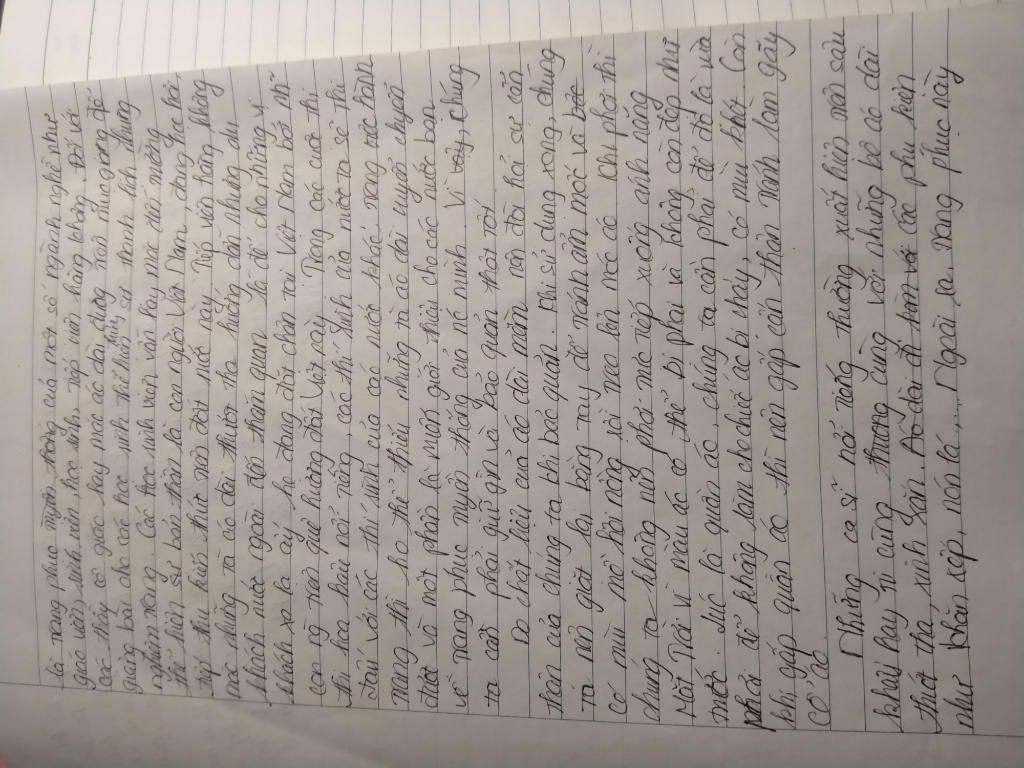 là trang phục truyền thống của một số ngành nghề như
giáo viên, sinh viên, học sinh, tiếp viên hàng không. Đối với
các thầy cô giáo hay mặc áo dài đứng trên mục giảng để
giảng bài cho các học sinh thì thể hiện sự thanh lịch, nhưng
nghiêm trang. Các học sinh, sinh viên, vẫn hay mặc đến trường
thể hiện sự bản thân là con người Việt Nam, đang học hỏi,
tiếp thu kiến thức trên đất nước này. Tiếp viên hàng không
mặc những tà áo dài thướt tha hướng dẫn những du
khách nước ngoài đến tham quan là để cho những vị
khách xa lạ ấy, họ đang đặt chân tại Việt Nam bởi những
con người trên quê hương đất Việt này. Trong các cuộc thi
thì hoa hậu nổi tiếng, các thí sinh của nước ta sẽ thi
đấu với các thí sinh của các nước khác, trong trước hàng
trăng thì họ thể thiếu những tà áo dài uyển chuyển
dệt và một phần là muốn giới thiệu cho các nước bạn
về trang phục truyền thống của nó mình. Vì vậy, chúng
ta cần phải giữ gìn và bảo quản thật tốt.
Do chất liệu của áo dài mềm nên đòi hỏi sự cẩn
thận của chúng ta khi bảo quản. Khi sử dụng xong, chúng
ta nên giặt lại bằng tay để tránh ẩm mốc và
có mùi mồ hôi nồng rồi treo lên móc áo. Khi phơi thì
chúng ta không nên phơi trực tiếp xuống ánh nắng
Mặt Trời vì màu áo có thể bị phai và không còn đẹp như
trước. Lúc là quần áo, chúng ta cần phải để độ là vừa
phải để không làm cho chiếc áo bị nháy, có mùi khét. Còn
khi gấp quần áo thì nên gấp cẩn thận tránh làm gãy
cổ áo.
Những ca sĩ nổi tiếng thường xuất hiện trên sân
khấu hay đi cùng với những bộ áo dài
thướt tha, xinh xắn. Áo dài đi kèm với các phụ kiện
như khăn xếp, nón lá,... Ngoài ra, trang phục này